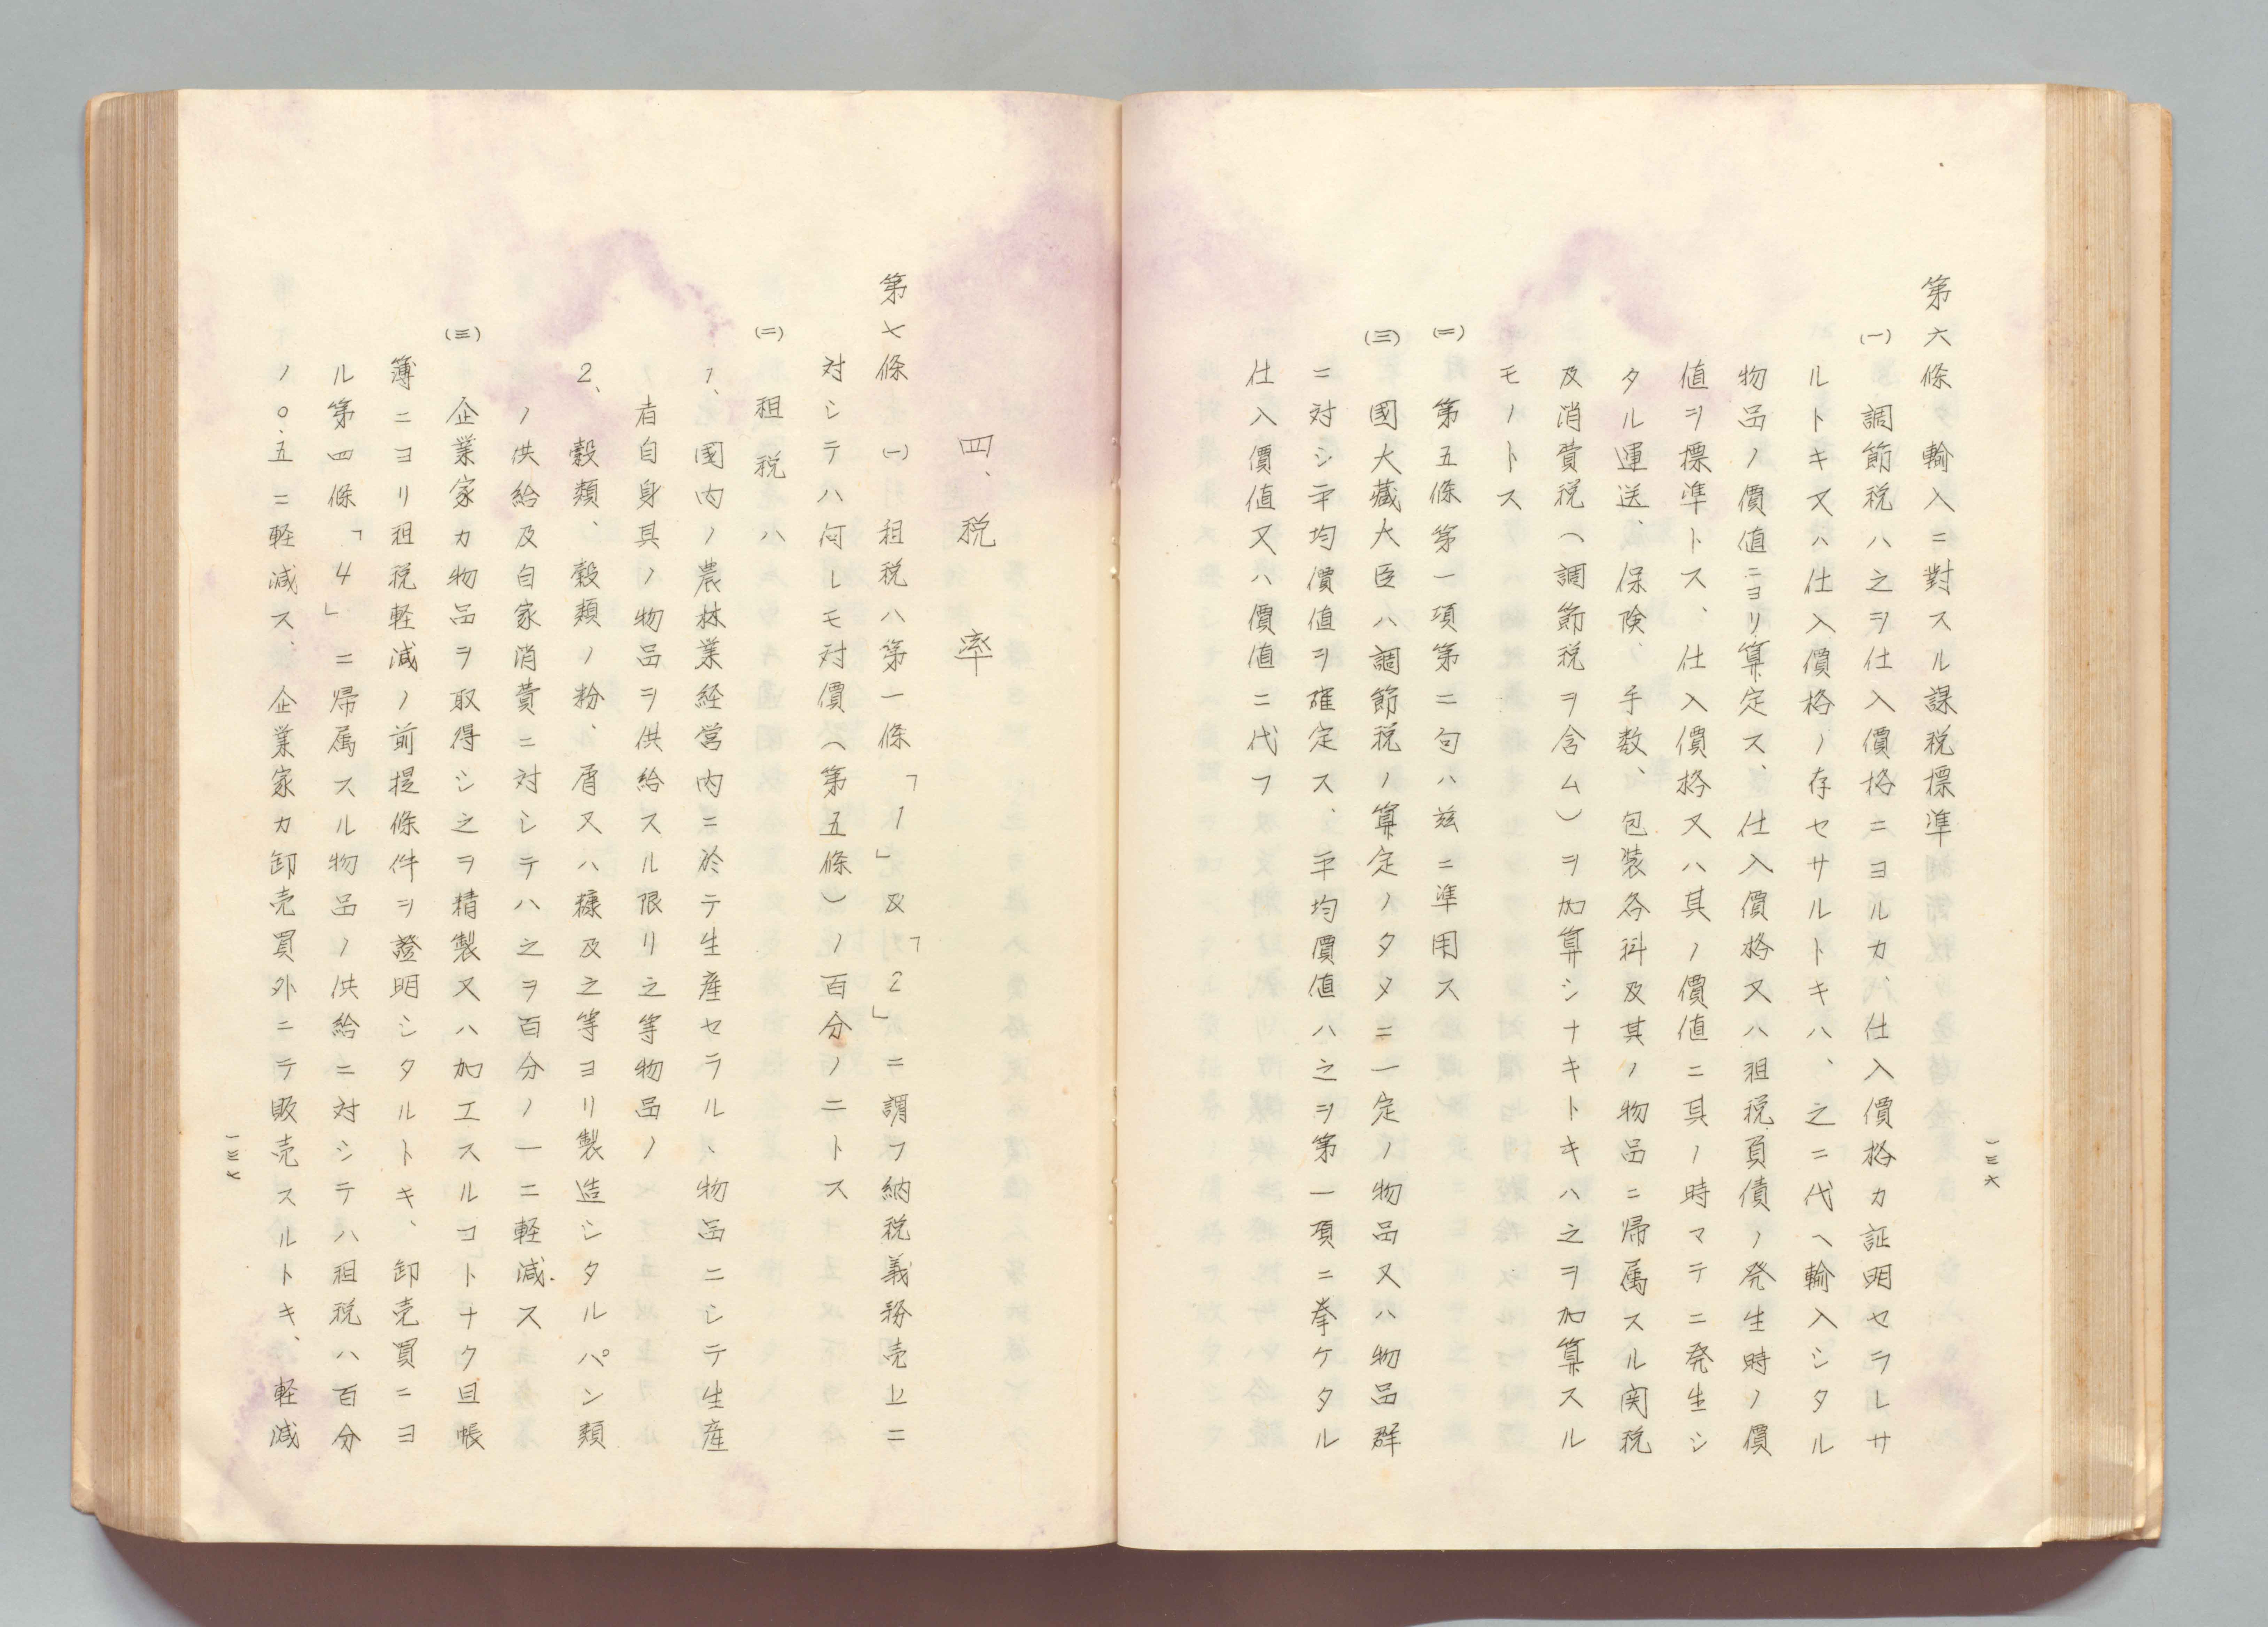 第六條　輸入ニ對スル課税標準
(一)　調節税ハ之ヲ仕入價格ニヨルカ、仕入價格カ証明セラレサ
ルトキ又ハ仕入價格ノ存セサルトキハ、之ニ代ヘ輸入シタル
物品ノ價値ニヨリ算定ス、仕入價格又ハ租税負債ノ発生時ノ價
値ヲ標準トス、仕入價格又ハ其ノ價値ニ其ノ時マテニ発生シ
タル運送、保険、手数、包装各料及其ノ物品ニ帰属スル関税
及消費税（調節税ヲ含ム）ヲ加算シナキトキハ之ヲ加算スル
モノトス
(二)　第五條第一項第二句ハ茲ニ準用ス
(三)　國大藏大臣ハ調節税ノ算定ノタメニ一定ノ物品又ハ物品群
ニ対シ平均價値ヲ確定ス、平均價値ハ之ヲ第一項ニ挙ケタル
仕入價値又ハ價値ニ代フ
一三六
四、税　率
第七條　(一)　租税ハ第一條「1」及「2」ニ謂フ納税義務売上ニ
対シテハ何レモ対價（第五條）ノ百分ノ二トス
(二)　租税ハ
1、國内ノ農林業経営内ニ於テ生産セラル、物品ニシテ生産
者自身其ノ物品ヲ供給スル限リ之等物品ノ
2、穀類、穀類ノ粉、屑又ハ糠及之等ヨリ製造シタルパン類
ノ供給及自家消費ニ対シテハ之ヲ百分ノ一ニ軽減ス
(三)　企業家カ物品ヲ取得シ之ヲ精製又ハ加工スルコトナク且帳
簿ニヨリ租税軽減ノ前提條件ヲ證明シタルトキ、卸売買ニヨ
ル第四條「4」ニ帰属スル物品ノ供給ニ対シテハ租税ハ百分
ノ〇.五ニ軽減ス、企業家カ卸売買外ニテ販売スルトキ、軽減
一三七